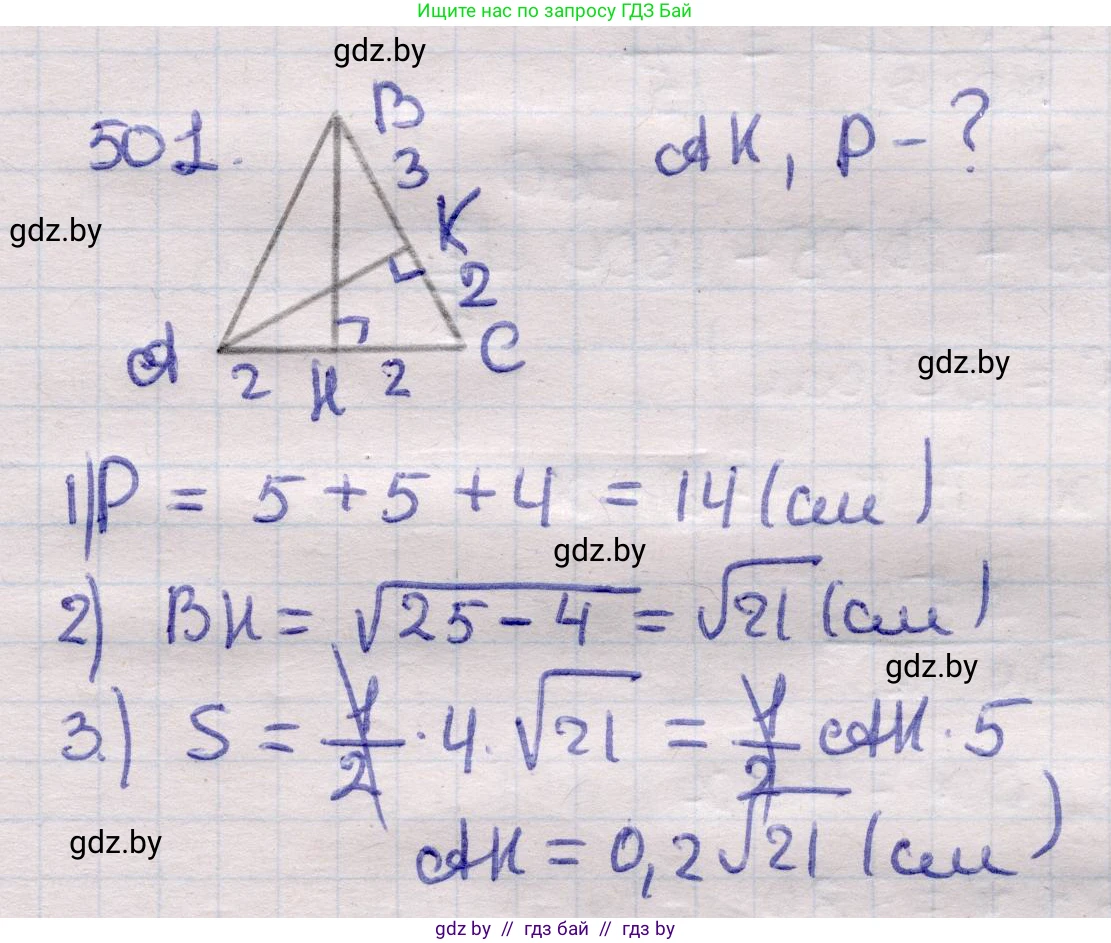 Ищите нас по запросу ГДЗ Бай
gdz.by
501.
B
3
AK, P - ?
gdz.by
K
2
A
2
H
2
C
gdz.by
1) P = 5 + 5 + 4 = 14 (см)
gdz.by
2) BH = √25 - 4 = √21 (см)
gdz.by
3.) S = 1/2 · 4 · √21 = 1/2 AK · 5
gdz.by
AK = 0,2√21 (см)
gdz.by // гдз бай // гдз by